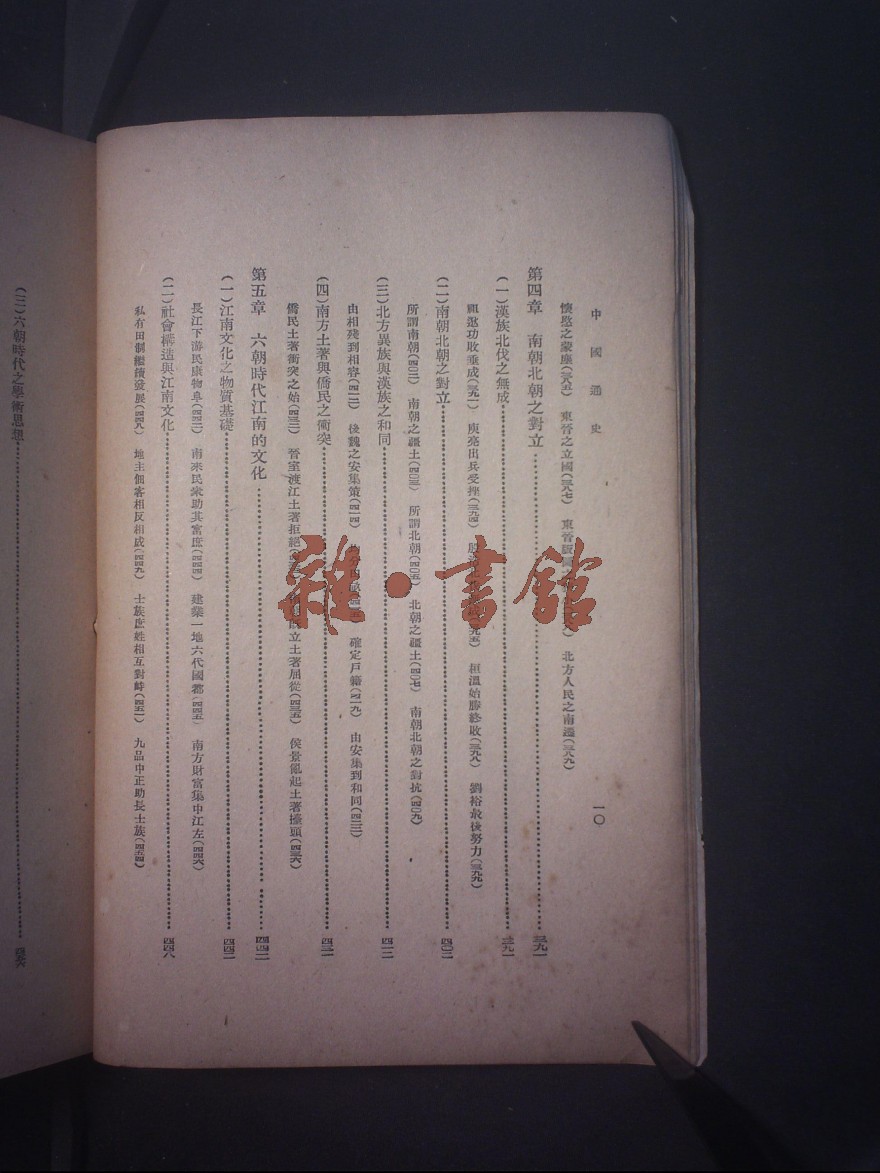 中國通史
一〇
懷愍之蒙塵(三八五) 東晉之立國(三八七) 東晉 北方人民之南遷(三八九)
第四章 南朝北朝之對立……三九一
(一)漢族北伐之無成……三九一
祖逖功敗垂成(三九一) 庾亮出兵受挫(三九四) 桓溫始勝終敗(三九八) 劉裕最後努力(三九九)
(二)南朝北朝之對立……四〇二
所謂南朝(四〇二) 南朝之疆土(四〇三) 所謂北朝(四〇五) 北朝之疆土(四〇七) 南朝北朝之對抗(四〇九)
(三)北方異族與漢族之和同……四一二
由相殘到相容(四一二) 後魏之安集策(四一四) 確定戶籍(四一九) 由安集到和同(四二三)
(四)南方土著與僑民之衝突……四三二
僑民土著衝突之始(四三二) 晉室渡江土著拒絕 立土著屈從(四三五) 侯景亂起土著擡頭(四三六)
第五章 六朝時代江南的文化……四四二
(一)江南文化之物質基礎……四四二
長江下游民康物阜(四四二) 南來民衆助其富庶(四四四) 建業一地六代國都(四四五) 南方財富集中江左(四四六)
(二)社會構造與江南文化……四四八
私有田制繼續發展(四四八) 地主佃客相反相成(四四九) 士族庶姓相互對峙(四五一) 九品中正助長士族(四五四)
(三)六朝時代之學術思想……
雜·書館